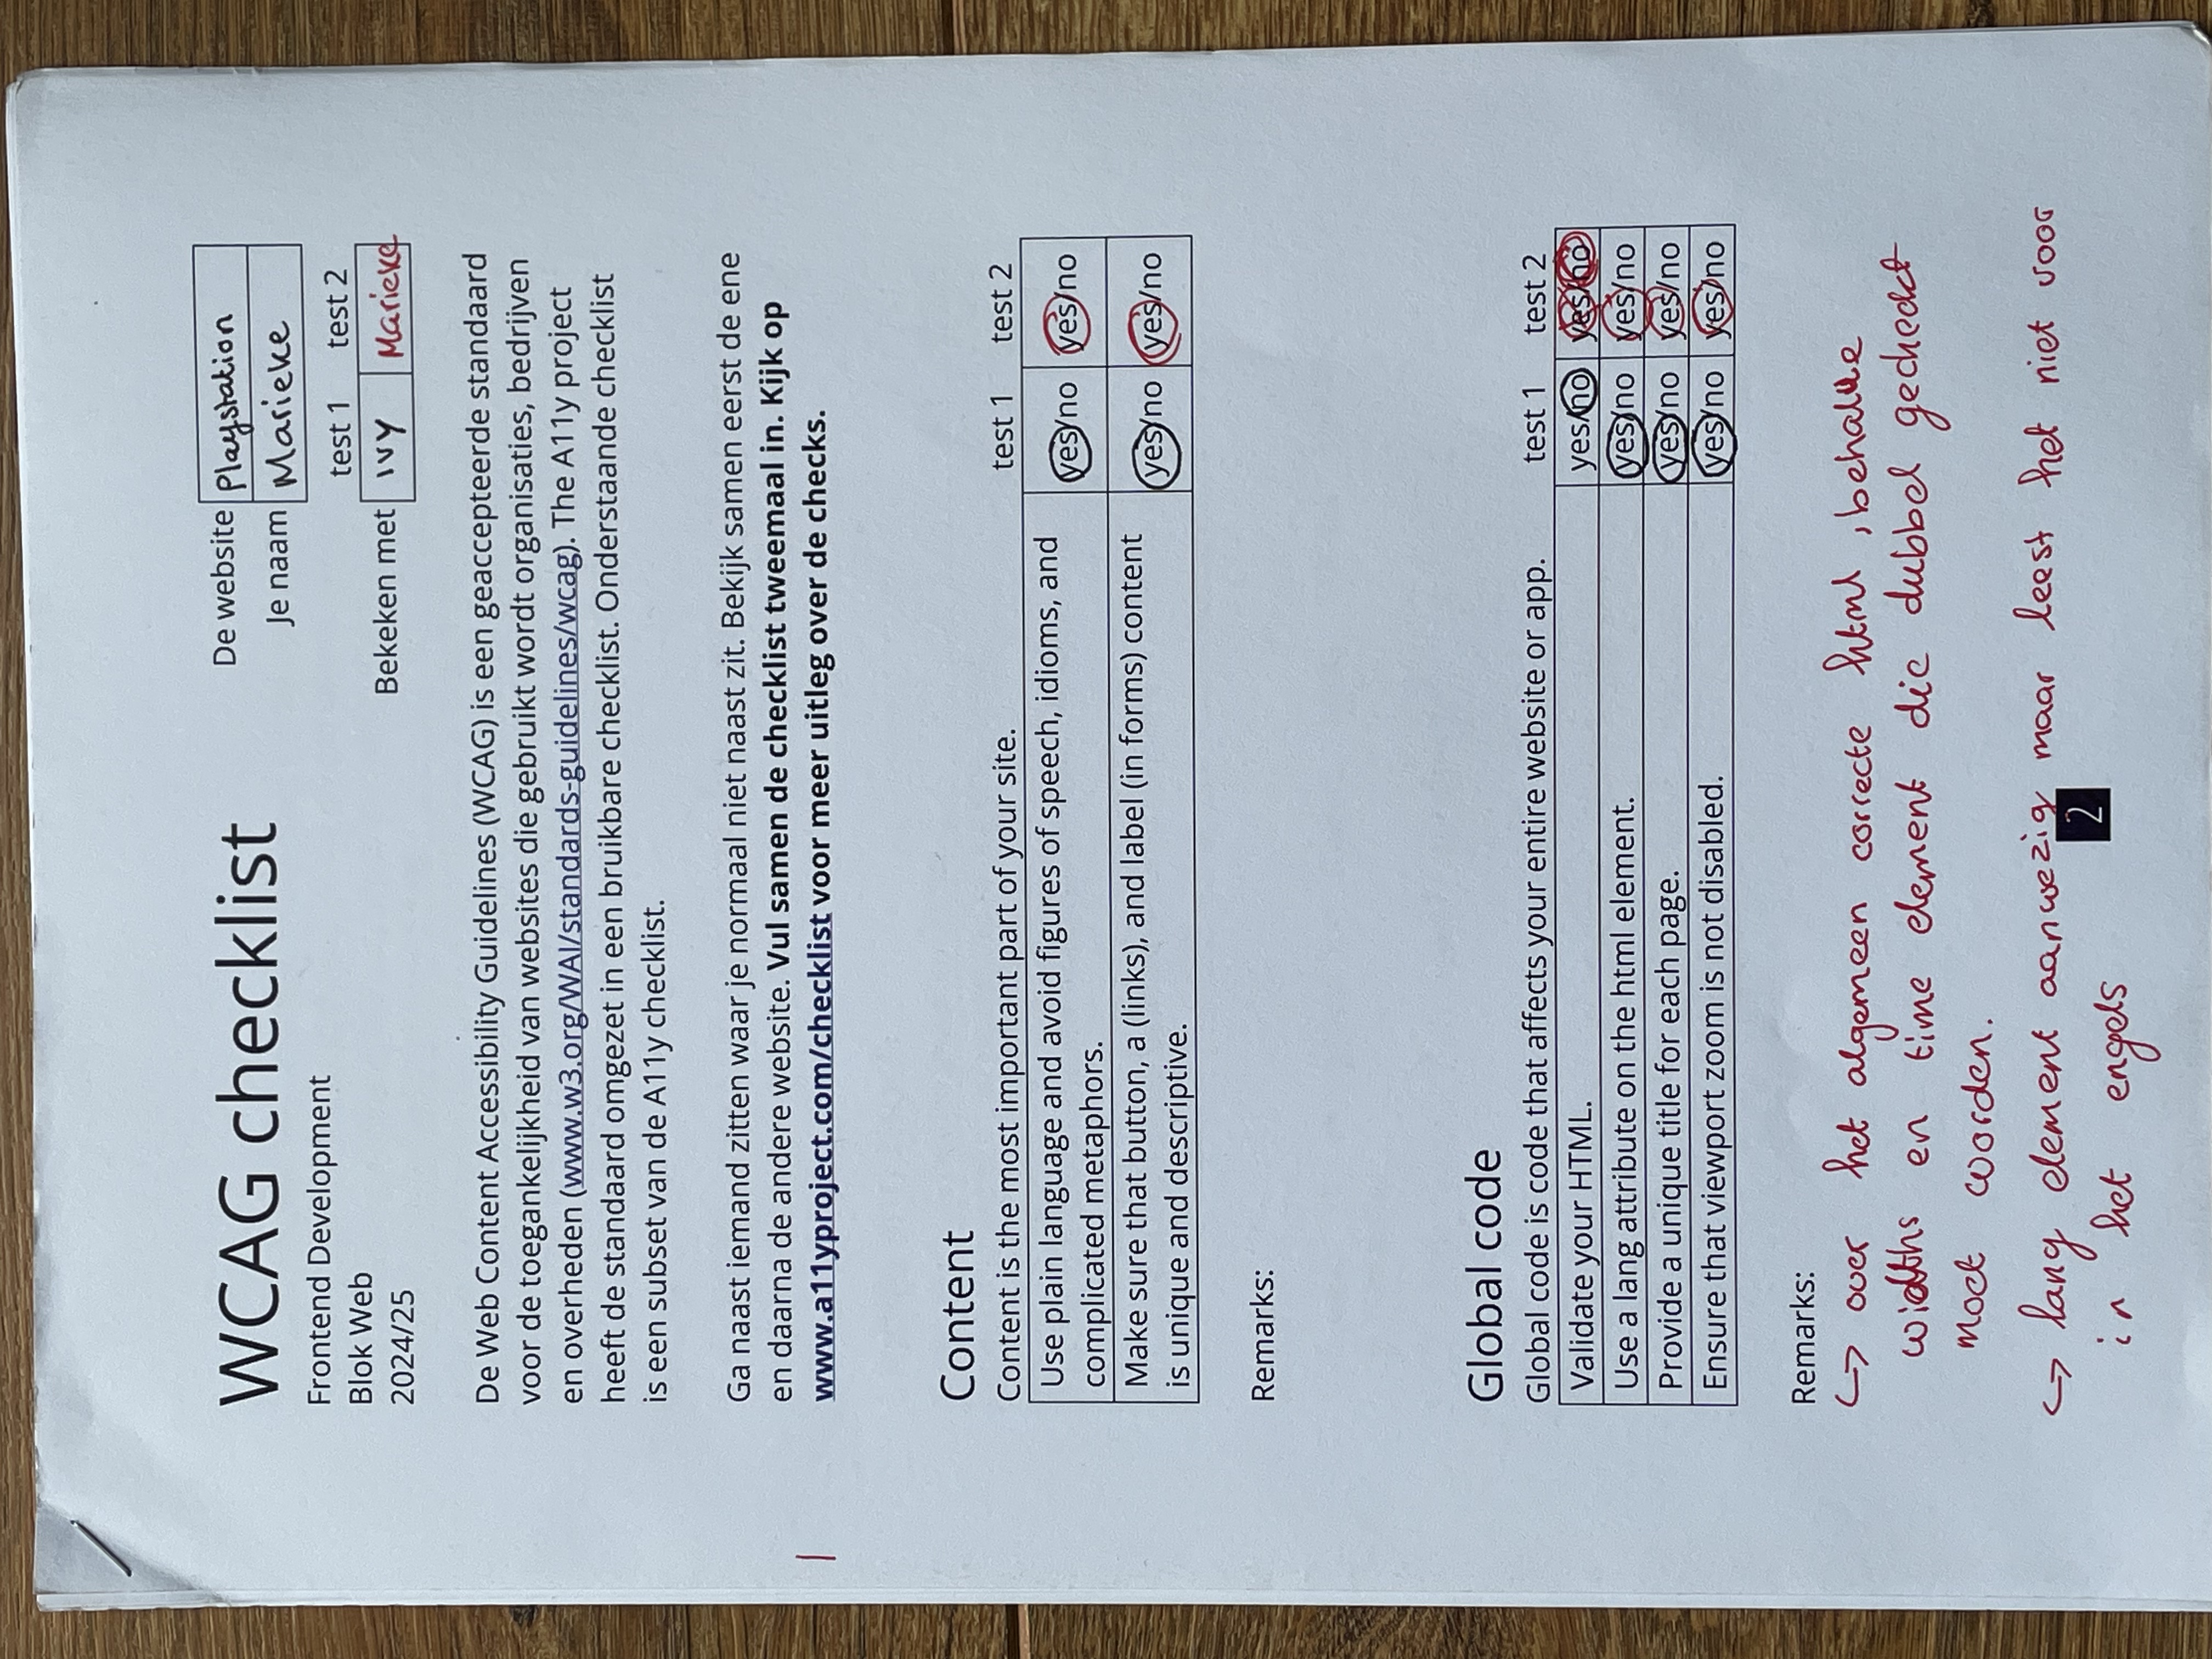 WCAG checklist
Frontend Development
Blok Web
2024/25
De website Playstation
Je naam Marieke
test 1 test 2
Bekeken met IVY Marieke
De Web Content Accessibility Guidelines (WCAG) is een geaccepteerde standaard
voor de toegankelijkheid van websites die gebruikt wordt organisaties, bedrijven
en overheden (www.w3.org/WAI/standards-guidelines/wcag). The A11y project
heeft de standaard omgezet in een bruikbare checklist. Onderstaande checklist
is een subset van de A11y checklist.
Ga naast iemand zitten waar je normaal niet naast zit. Bekijk samen eerst de ene
en daarna de andere website. Vul samen de checklist tweemaal in. Kijk op
www.a11yproject.com/checklist voor meer uitleg over de checks.
Content
Content is the most important part of your site. test 1 test 2
Use plain language and avoid figures of speech, idioms, and
complicated metaphors. yes/no yes/no
Make sure that button, a (links), and label (in forms) content
is unique and descriptive. yes/no yes/no
Remarks:
Global code
Global code is code that affects your entire website or app. test 1 test 2
Validate your HTML. yes/no yes/no
Use a lang attribute on the html element. yes/no yes/no
Provide a unique title for each page. yes/no yes/no
Ensure that viewport zoom is not disabled. yes/no yes/no
Remarks:
↪ over het algemeen correcte html, behalve
widths en time element die dubbel gecheckt
moet worden.
↪ lang element aanwezig maar leest het niet voor
in het engels
2